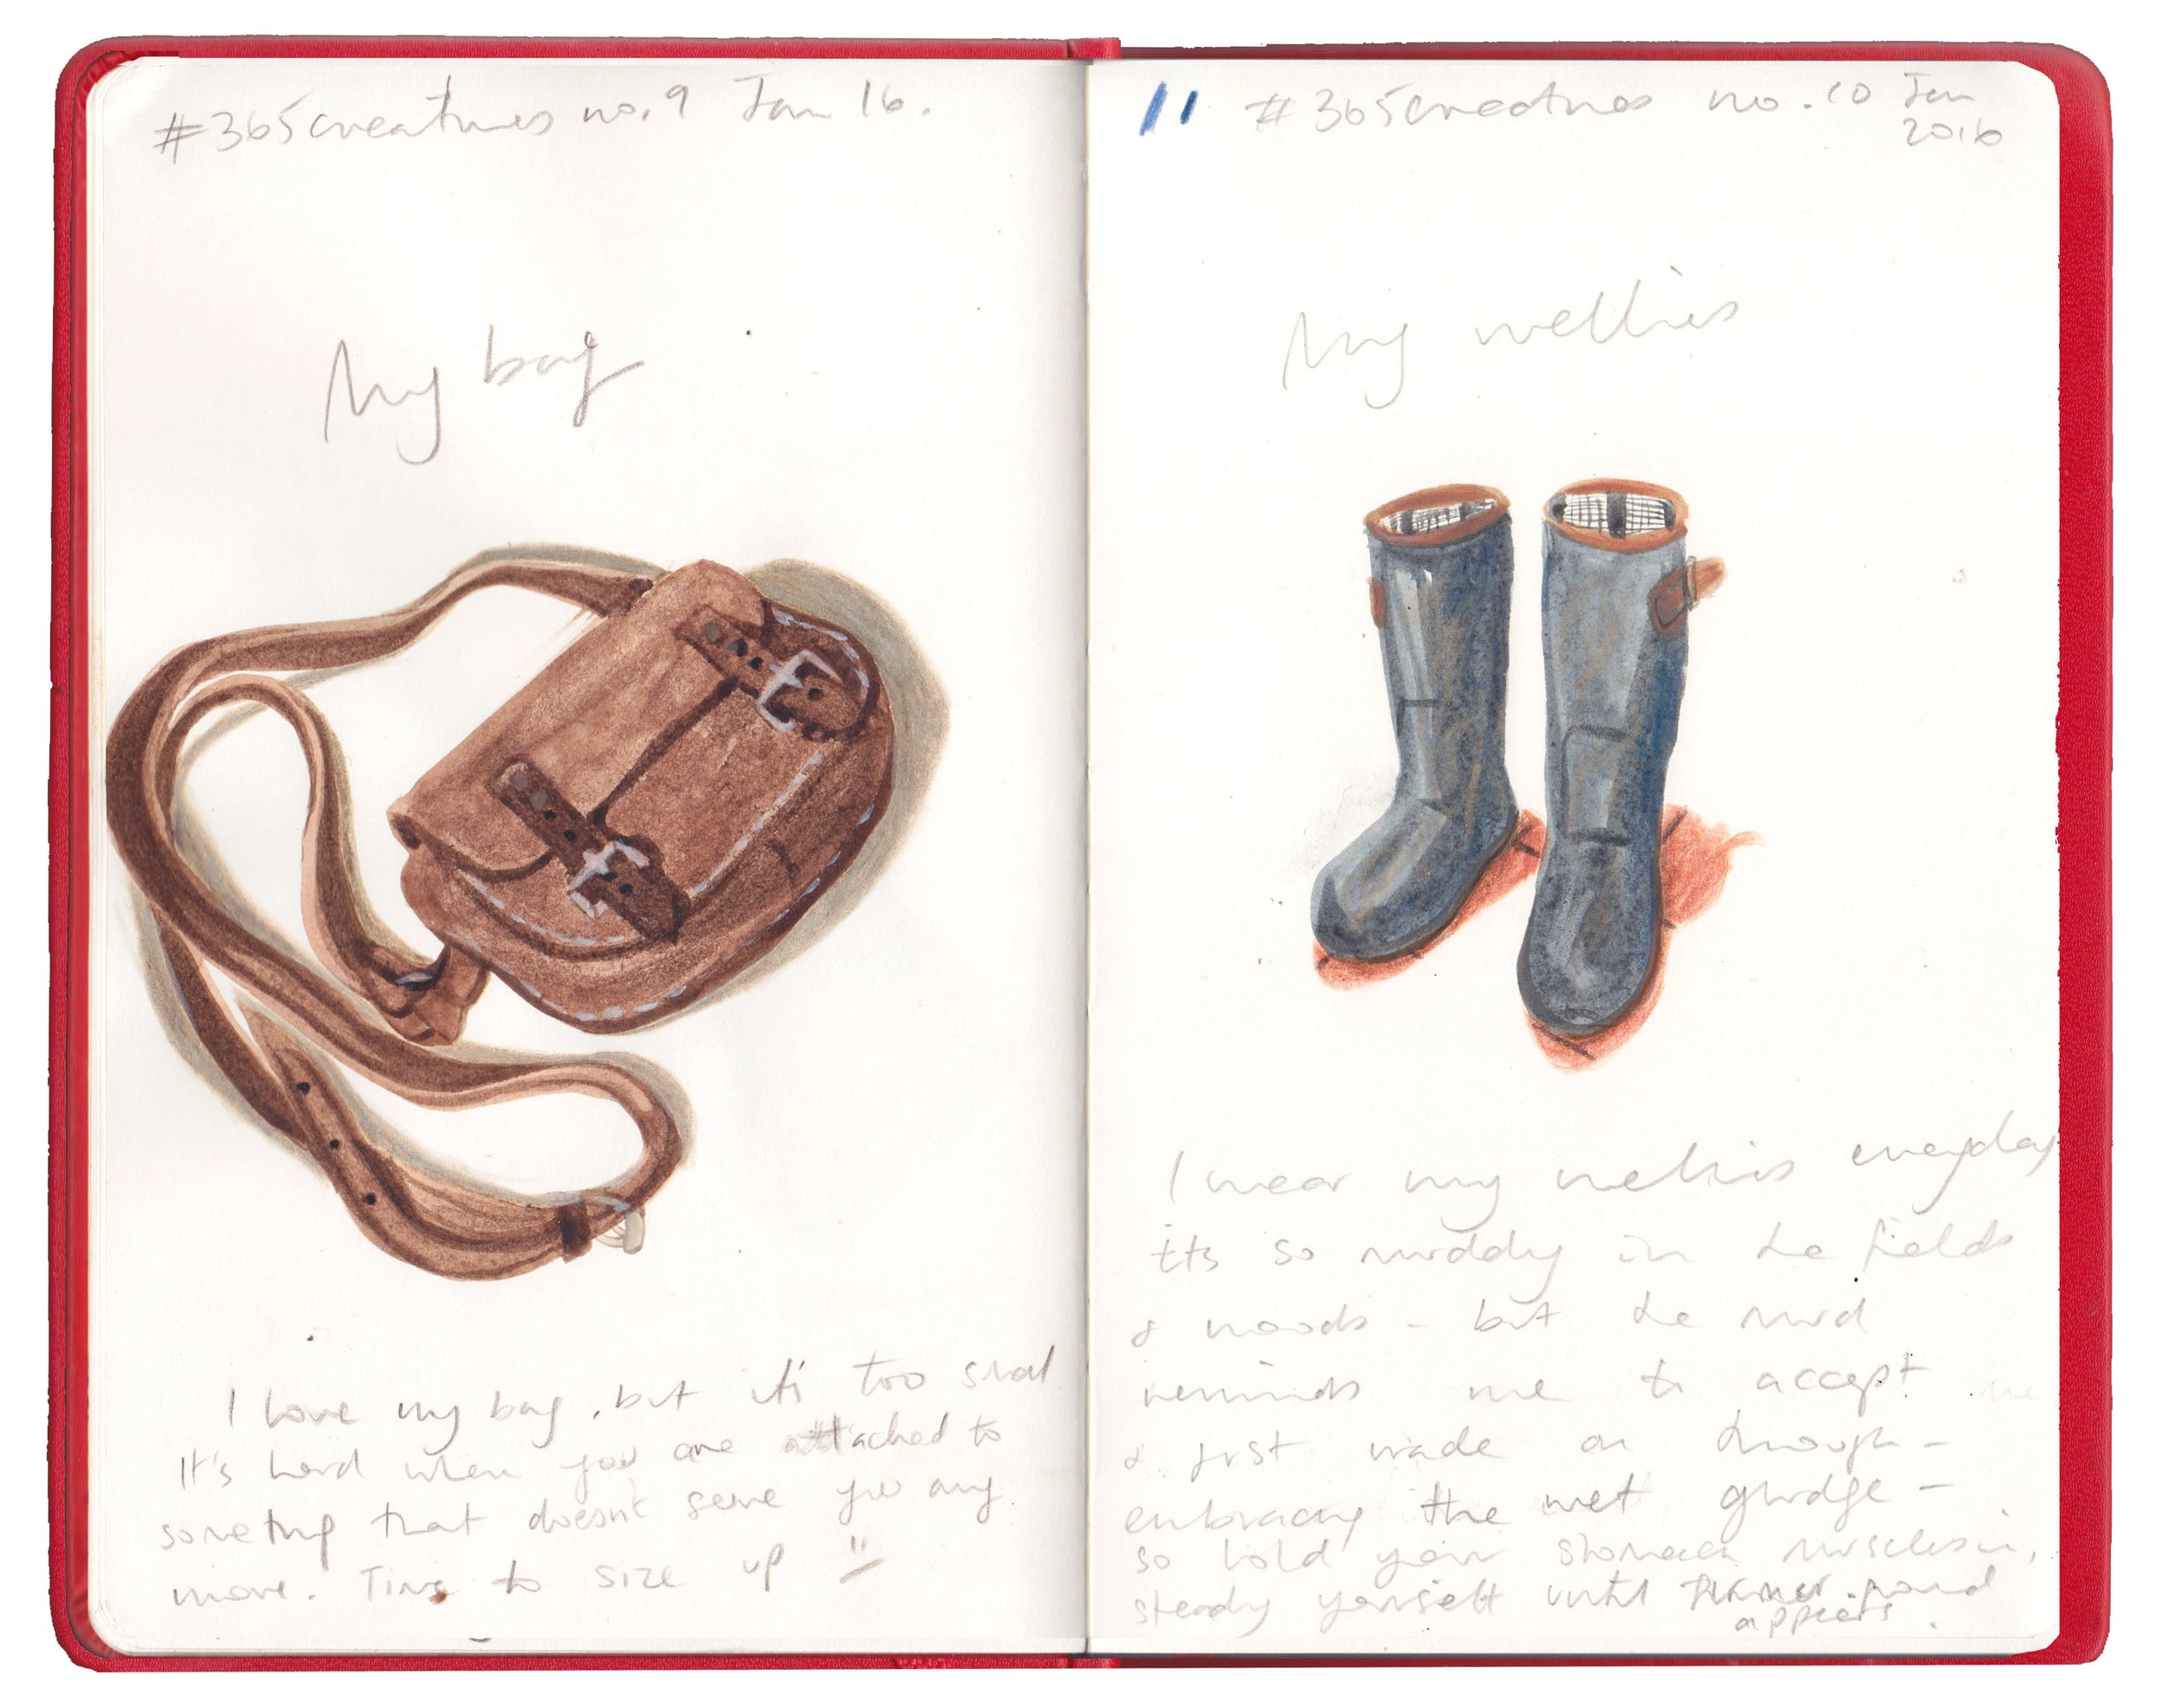 #365creatures no.9 Jan 16.
My bag
I love my bag, but it's too small
It's hard when you are attached to
something that doesn't serve you any
more. Time to size up !!
11 #365creatures no.10 Jan
2016
My wellies
I wear my wellies everyday
its so muddy in the fields
& woods - but the mud
reminds me to accept
& just wade on through -
embracing the wet
so hold your stomach muscles in,
steady yourself until firmer
appears.